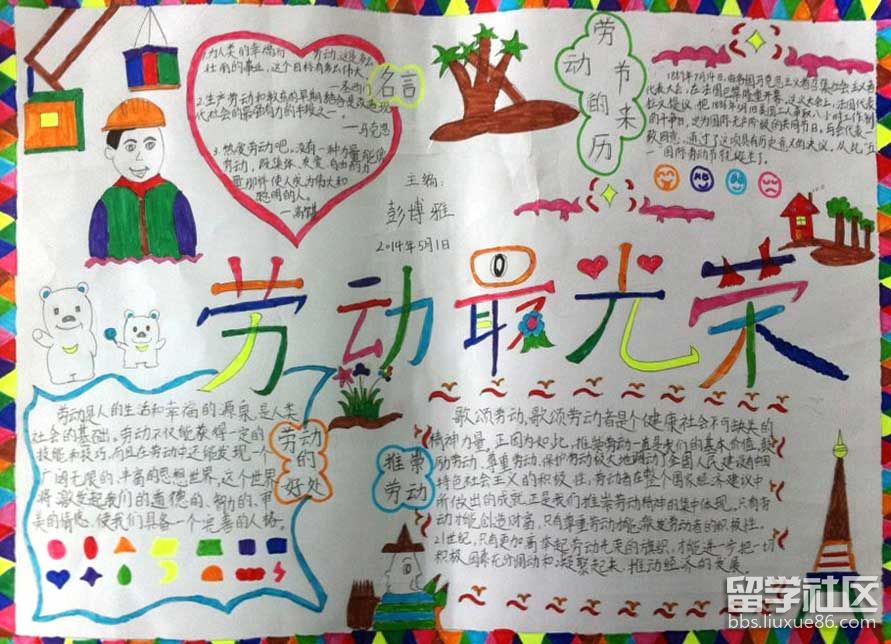 1.为人类的幸福而劳动,这是多么
壮丽的事业,这个目标有多么伟大。
—圣西门
名言
2.生产劳动和教育的早期结合是改造现
代社会的最强有力的手段之一。
—马克思
3.热爱劳动吧。没有一种力量能像
劳动,既集体、友爱、自由的劳动
的力量那样使人成为伟大和
聪明的人。
—高尔基
主编:
彭博雅
2014年5月1日
劳动节的来历
1889年7月14日,由各国马克思主义者召集社会主义者
代表大会,在法国巴黎隆重开幕。这次大会上,法国代表
拉文提议,把1886年5月1日美国工人争取八小时工作制
的斗争日,定为国际无产阶级的共同节日。与会代表一
致同意,通过了这项具有历史意义的决议。从此“五
一”国际劳动节诞生了。
劳动最光荣
劳动的好处
劳动是人的生活和幸福的源泉,是人类
社会的基础。劳动不仅能获得一定的
技能和技巧,而且在劳动中还能发现一个
广阔无限的、丰富的思想世界,这个世界
将激发起我们的道德的、智力的、审
美的情感,使我们具备一个完善的人格。
推崇劳动
歌颂劳动、歌颂劳动者是个健康社会不可缺失的
精神力量。正因为如此,推崇劳动一直是我们的基本价值,鼓
励劳动、尊重劳动、保护劳动极大地调动了全国人民建设中国
特色社会主义的积极性。劳动者在整个国家经济建设中
所做出的成就,正是我们推崇劳动精神的集中体现。只有劳
动才能创造财富,只有尊重劳动才能激发劳动者的积极性。
21世纪,只有更加高举起劳动光荣的旗帜,才能进一步把一切
积极因素充分调动和凝聚起来,推动经济的发展。
留学社区
bbs.liuxue86.com